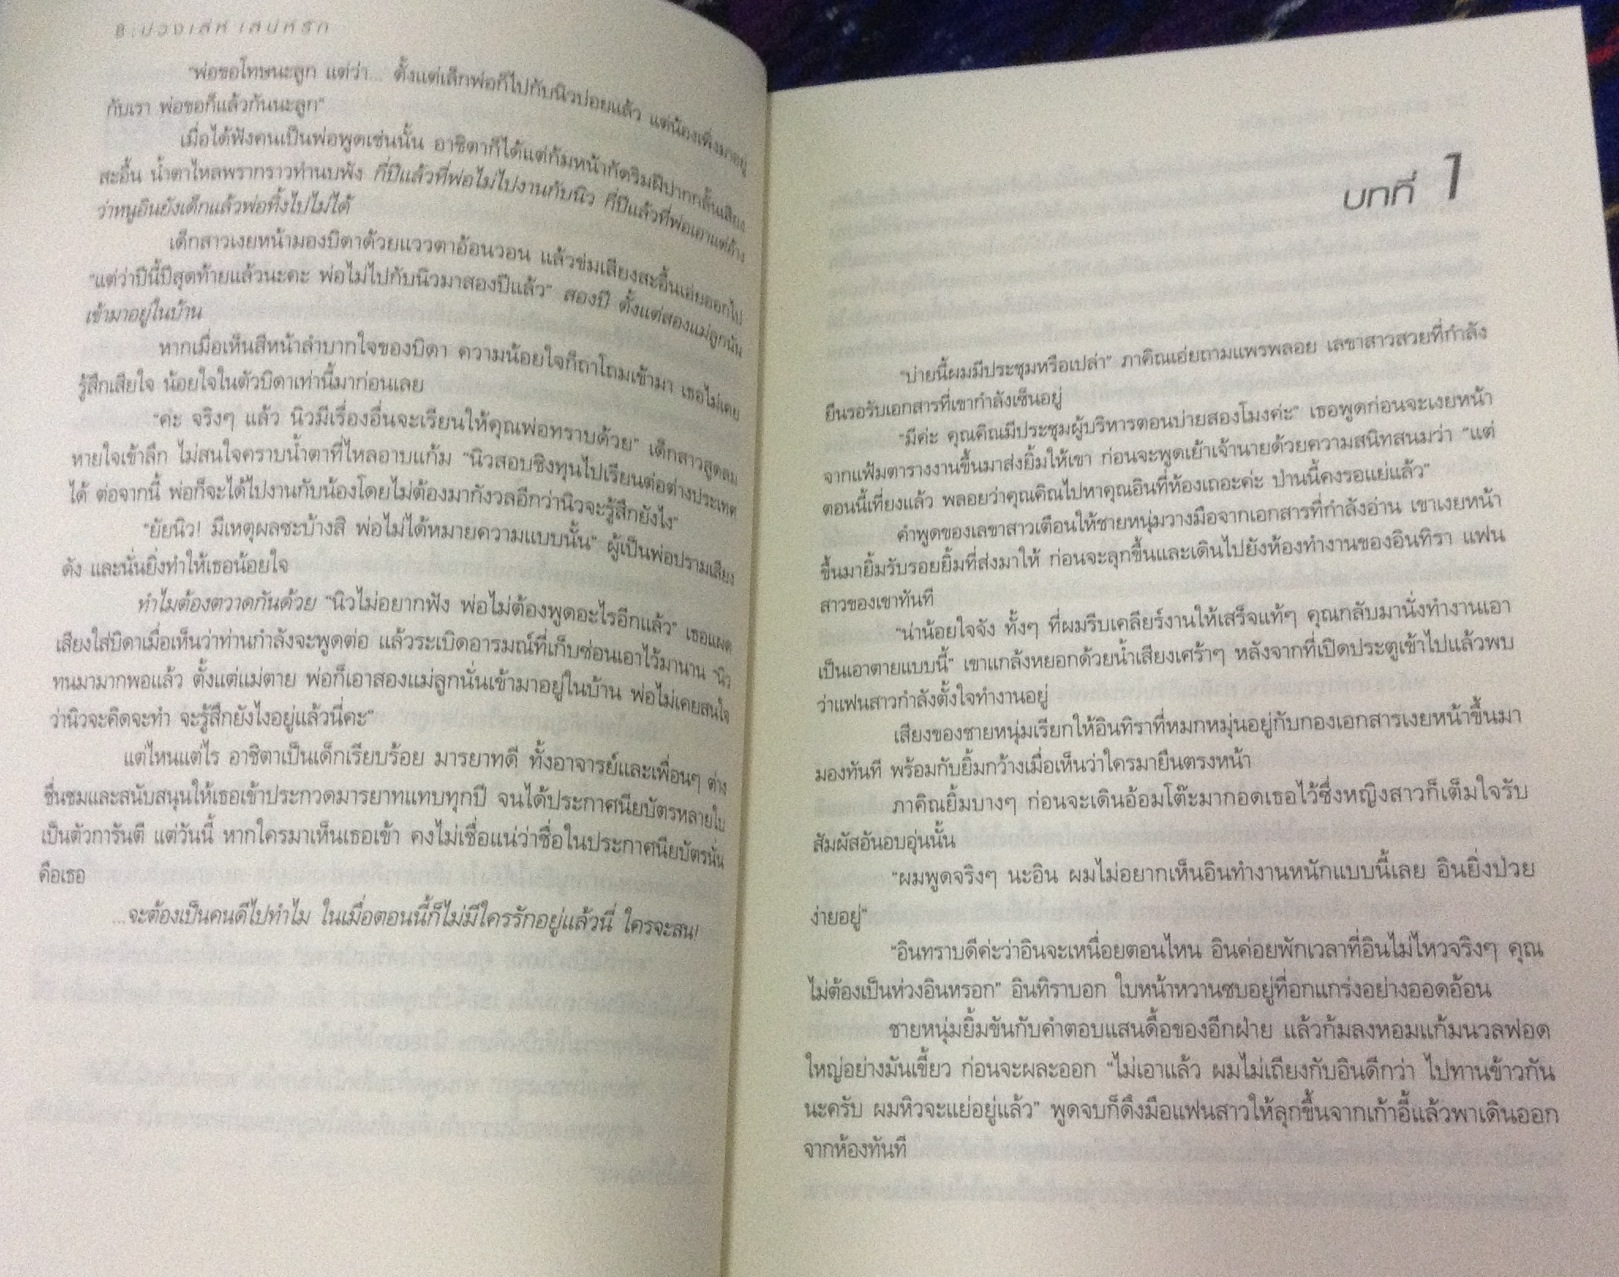 8 : บ่วงเล่ห์ เสน่ห์รัก
"พ่อขอโทษนะลูก แต่ว่า... ตั้งแต่เล็กพ่อก็ไปกับนิวบ่อยแล้ว แต่น้องเพิ่งมาอยู่
กับเรา พ่อขอก็แล้วกันนะลูก"
เมื่อได้ฟังคนเป็นพ่อพูดเช่นนั้น อาชิตาก็ได้แต่ก้มหน้ากัดริมฝีปากกลั้นเสียง
สะอื้น น้ำตาไหลพรากราวทำนบพัง กี่ปีแล้วที่พ่อไม่ไปงานกับนิว กี่ปีแล้วที่พ่อเอาแต่อ้าง
ว่าหนูอินยังเด็กแล้วพ่อทิ้งไปไม่ได้
เด็กสาวเงยหน้ามองบิดาด้วยแววตาอ้อนวอน แล้วข่มเสียงสะอื้นเอ่ยออกไป
"แต่ว่าปีนี้ปีสุดท้ายแล้วนะคะ พ่อไม่ไปกับนิวมาสองปีแล้ว" สองปี ตั้งแต่สองแม่ลูกนั่น
เข้ามาอยู่ในบ้าน
หากเมื่อเห็นสีหน้าลำบากใจของบิดา ความน้อยใจก็ถาโถมเข้ามา เธอไม่เคย
รู้สึกเสียใจ น้อยใจในตัวบิดาเท่านี้มาก่อนเลย
"ค่ะ จริงๆ แล้ว นิวมีเรื่องอื่นจะเรียนให้คุณพ่อทราบด้วย" เด็กสาวสูดลม
หายใจเข้าลึก ไม่สนใจคราบน้ำตาที่ไหลอาบแก้ม "นิวสอบชิงทุนไปเรียนต่อต่างประเทศ
ได้ ต่อจากนี้ พ่อก็จะได้ไปงานกับน้องโดยไม่ต้องมากังวลอีกว่านิวจะรู้สึกยังไง"
"ยัยนิว! มีเหตุผลซะบ้างสิ พ่อไม่ได้หมายความแบบนั้น" ผู้เป็นพ่อปรามเสียง
ดัง และนั่นยิ่งทำให้เธอน้อยใจ
ทำไมต้องตวาดกันด้วย "นิวไม่อยากฟัง พ่อไม่ต้องพูดอะไรอีกแล้ว" เธอแผด
เสียงใส่บิดาเมื่อเห็นว่าท่านกำลังจะพูดต่อ แล้วระเบิดอารมณ์ที่เก็บซ่อนเอาไว้มานาน "นิว
ทนมามากพอแล้ว ตั้งแต่แม่ตาย พ่อก็เอาสองแม่ลูกนั่นเข้ามาอยู่ในบ้าน พ่อไม่เคยสนใจ
ว่านิวจะคิดจะทำ จะรู้สึกยังไงอยู่แล้วนี่คะ"
แต่ไหนแต่ไร อาชิตาเป็นเด็กเรียบร้อย มารยาทดี ทั้งอาจารย์และเพื่อนๆ ต่าง
ชื่นชมและสนับสนุนให้เธอเข้าประกวดมารยาทแทบทุกปี จนได้ประกาศนียบัตรหลายใบ
เป็นตัวการันตี แต่วันนี้ หากใครมาเห็นเธอเข้า คงไม่เชื่อแน่ว่าชื่อในประกาศนียบัตรนั่น
คือเธอ
...จะต้องเป็นคนดีไปทำไม ในเมื่อตอนนี้ก็ไม่มีใครรักอยู่แล้วนี่ ใครจะสน!
บทที่ 1
"บ่ายนี้ผมมีประชุมหรือเปล่า" ภาคิณเอ่ยถามแพรพลอย เลขาสาวสวยที่กำลัง
ยืนรอรับเอกสารที่เขากำลังเซ็นอยู่
"มีค่ะ คุณคิณมีประชุมผู้บริหารตอนบ่ายสองโมงค่ะ" เธอพูดก่อนจะเงยหน้า
จากแฟ้มตารางงานขึ้นมาส่งยิ้มให้เขา ก่อนจะพูดเย้าเจ้านายด้วยความสนิทสนมว่า "แต่
ตอนนี้เที่ยงแล้ว พลอยว่าคุณคิณไปหาคุณอินที่ห้องเถอะค่ะ ป่านนี้คงรอแย่แล้ว"
คำพูดของเลขาสาวเตือนให้ชายหนุ่มวางมือจากเอกสารที่กำลังอ่าน เขาเงยหน้า
ขึ้นมายิ้มรับรอยยิ้มที่ส่งมาให้ ก่อนจะลุกขึ้นและเดินไปยังห้องทำงานของอินทิรา แฟน
สาวของเขาทันที
"น่าน้อยใจจัง ทั้งๆ ที่ผมรีบเคลียร์งานให้เสร็จแท้ๆ คุณกลับมานั่งทำงานเอา
เป็นเอาตายแบบนี้" เขาแกล้งหยอกด้วยน้ำเสียงเศร้าๆ หลังจากที่เปิดประตูเข้าไปแล้วพบ
ว่าแฟนสาวกำลังตั้งใจทำงานอยู่
เสียงของชายหนุ่มเรียกให้อินทิราที่หมกหมุ่นอยู่กับกองเอกสารเงยหน้าขึ้นมา
มองทันที พร้อมกับยิ้มกว้างเมื่อเห็นว่าใครมายืนตรงหน้า
ภาคิณยิ้มบางๆ ก่อนจะเดินอ้อมโต๊ะมากอดเธอไว้ซึ่งหญิงสาวก็เต็มใจรับ
สัมผัสอันอบอุ่นนั้น
"ผมพูดจริงๆ นะอิน ผมไม่อยากเห็นอินทำงานหนักแบบนี้เลย อินยิ่งป่วย
ง่ายอยู่"
"อินทราบดีค่ะว่าอินจะเหนื่อยตอนไหน อินค่อยพักเวลาที่อินไม่ไหวจริงๆ คุณ
ไม่ต้องเป็นห่วงอินหรอก" อินทิราบอก ใบหน้าหวานซบอยู่ที่อกแกร่งอย่างออดอ้อน
ชายหนุ่มยิ้มขันกับคำตอบแสนดื้อของอีกฝ่าย แล้วก้มลงหอมแก้มนวลฟอด
ใหญ่อย่างมันเขี้ยว ก่อนจะผละออก "ไม่เอาแล้ว ผมไม่เถียงกับอินดีกว่า ไปทานข้าวกัน
นะครับ ผมหิวจะแย่อยู่แล้ว" พูดจบก็ดึงมือแฟนสาวให้ลุกขึ้นจากเก้าอี้แล้วพาเดินออก
จากห้องทันที